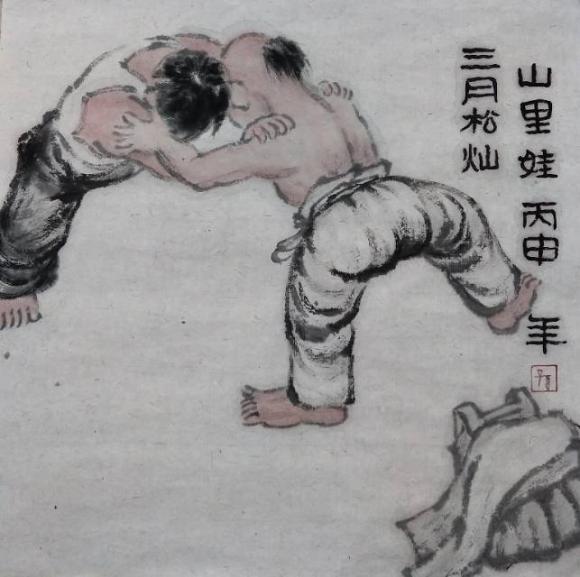 山里娃 丙申年
三月松灿